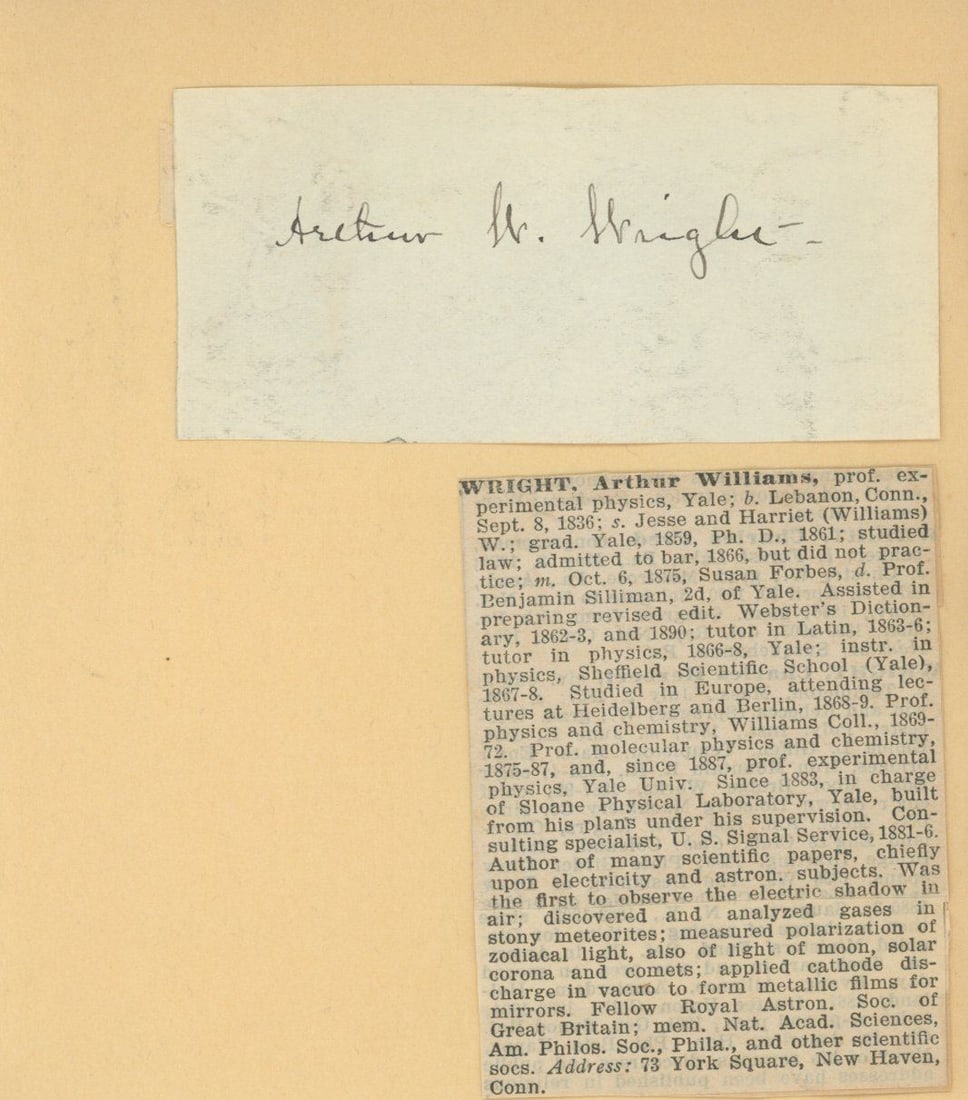 Arthur W. Wright-
WRIGHT, Arthur Williams, prof. ex-
perimental physics, Yale; b. Lebanon, Conn.,
Sept. 8, 1836; s. Jesse and Harriet (Williams)
W.; grad. Yale, 1859, Ph. D., 1861; studied
law; admitted to bar, 1866, but did not prac-
tice; m. Oct. 6, 1875, Susan Forbes, d. Prof.
Benjamin Silliman, 2d, of Yale. Assisted in
preparing revised edit. Webster's Diction-
ary, 1862-3, and 1890; tutor in Latin, 1863-6;
tutor in physics, 1866-8, Yale; instr. in
physics, Sheffield Scientific School (Yale),
1867-8. Studied in Europe, attending lec-
tures at Heidelberg and Berlin, 1868-9. Prof.
physics and chemistry, Williams Coll., 1869-
72. Prof. molecular physics and chemistry,
1875-87, and, since 1887, prof. experimental
physics, Yale Univ. Since 1883, in charge
of Sloane Physical Laboratory, Yale, built
from his plans under his supervision. Con-
sulting specialist, U. S. Signal Service, 1881-6.
Author of many scientific papers, chiefly
upon electricity and astron. subjects. Was
the first to observe the electric shadow in
air; discovered and analyzed gases in
stony meteorites; measured polarization of
zodiacal light, also of light of moon, solar
corona and comets; applied cathode dis-
charge in vacuo to form metallic films for
mirrors. Fellow Royal Astron. Soc. of
Great Britain; mem. Nat. Acad. Sciences,
Am. Philos. Soc., Phila., and other scientific
socs. Address: 73 York Square, New Haven,
Conn.